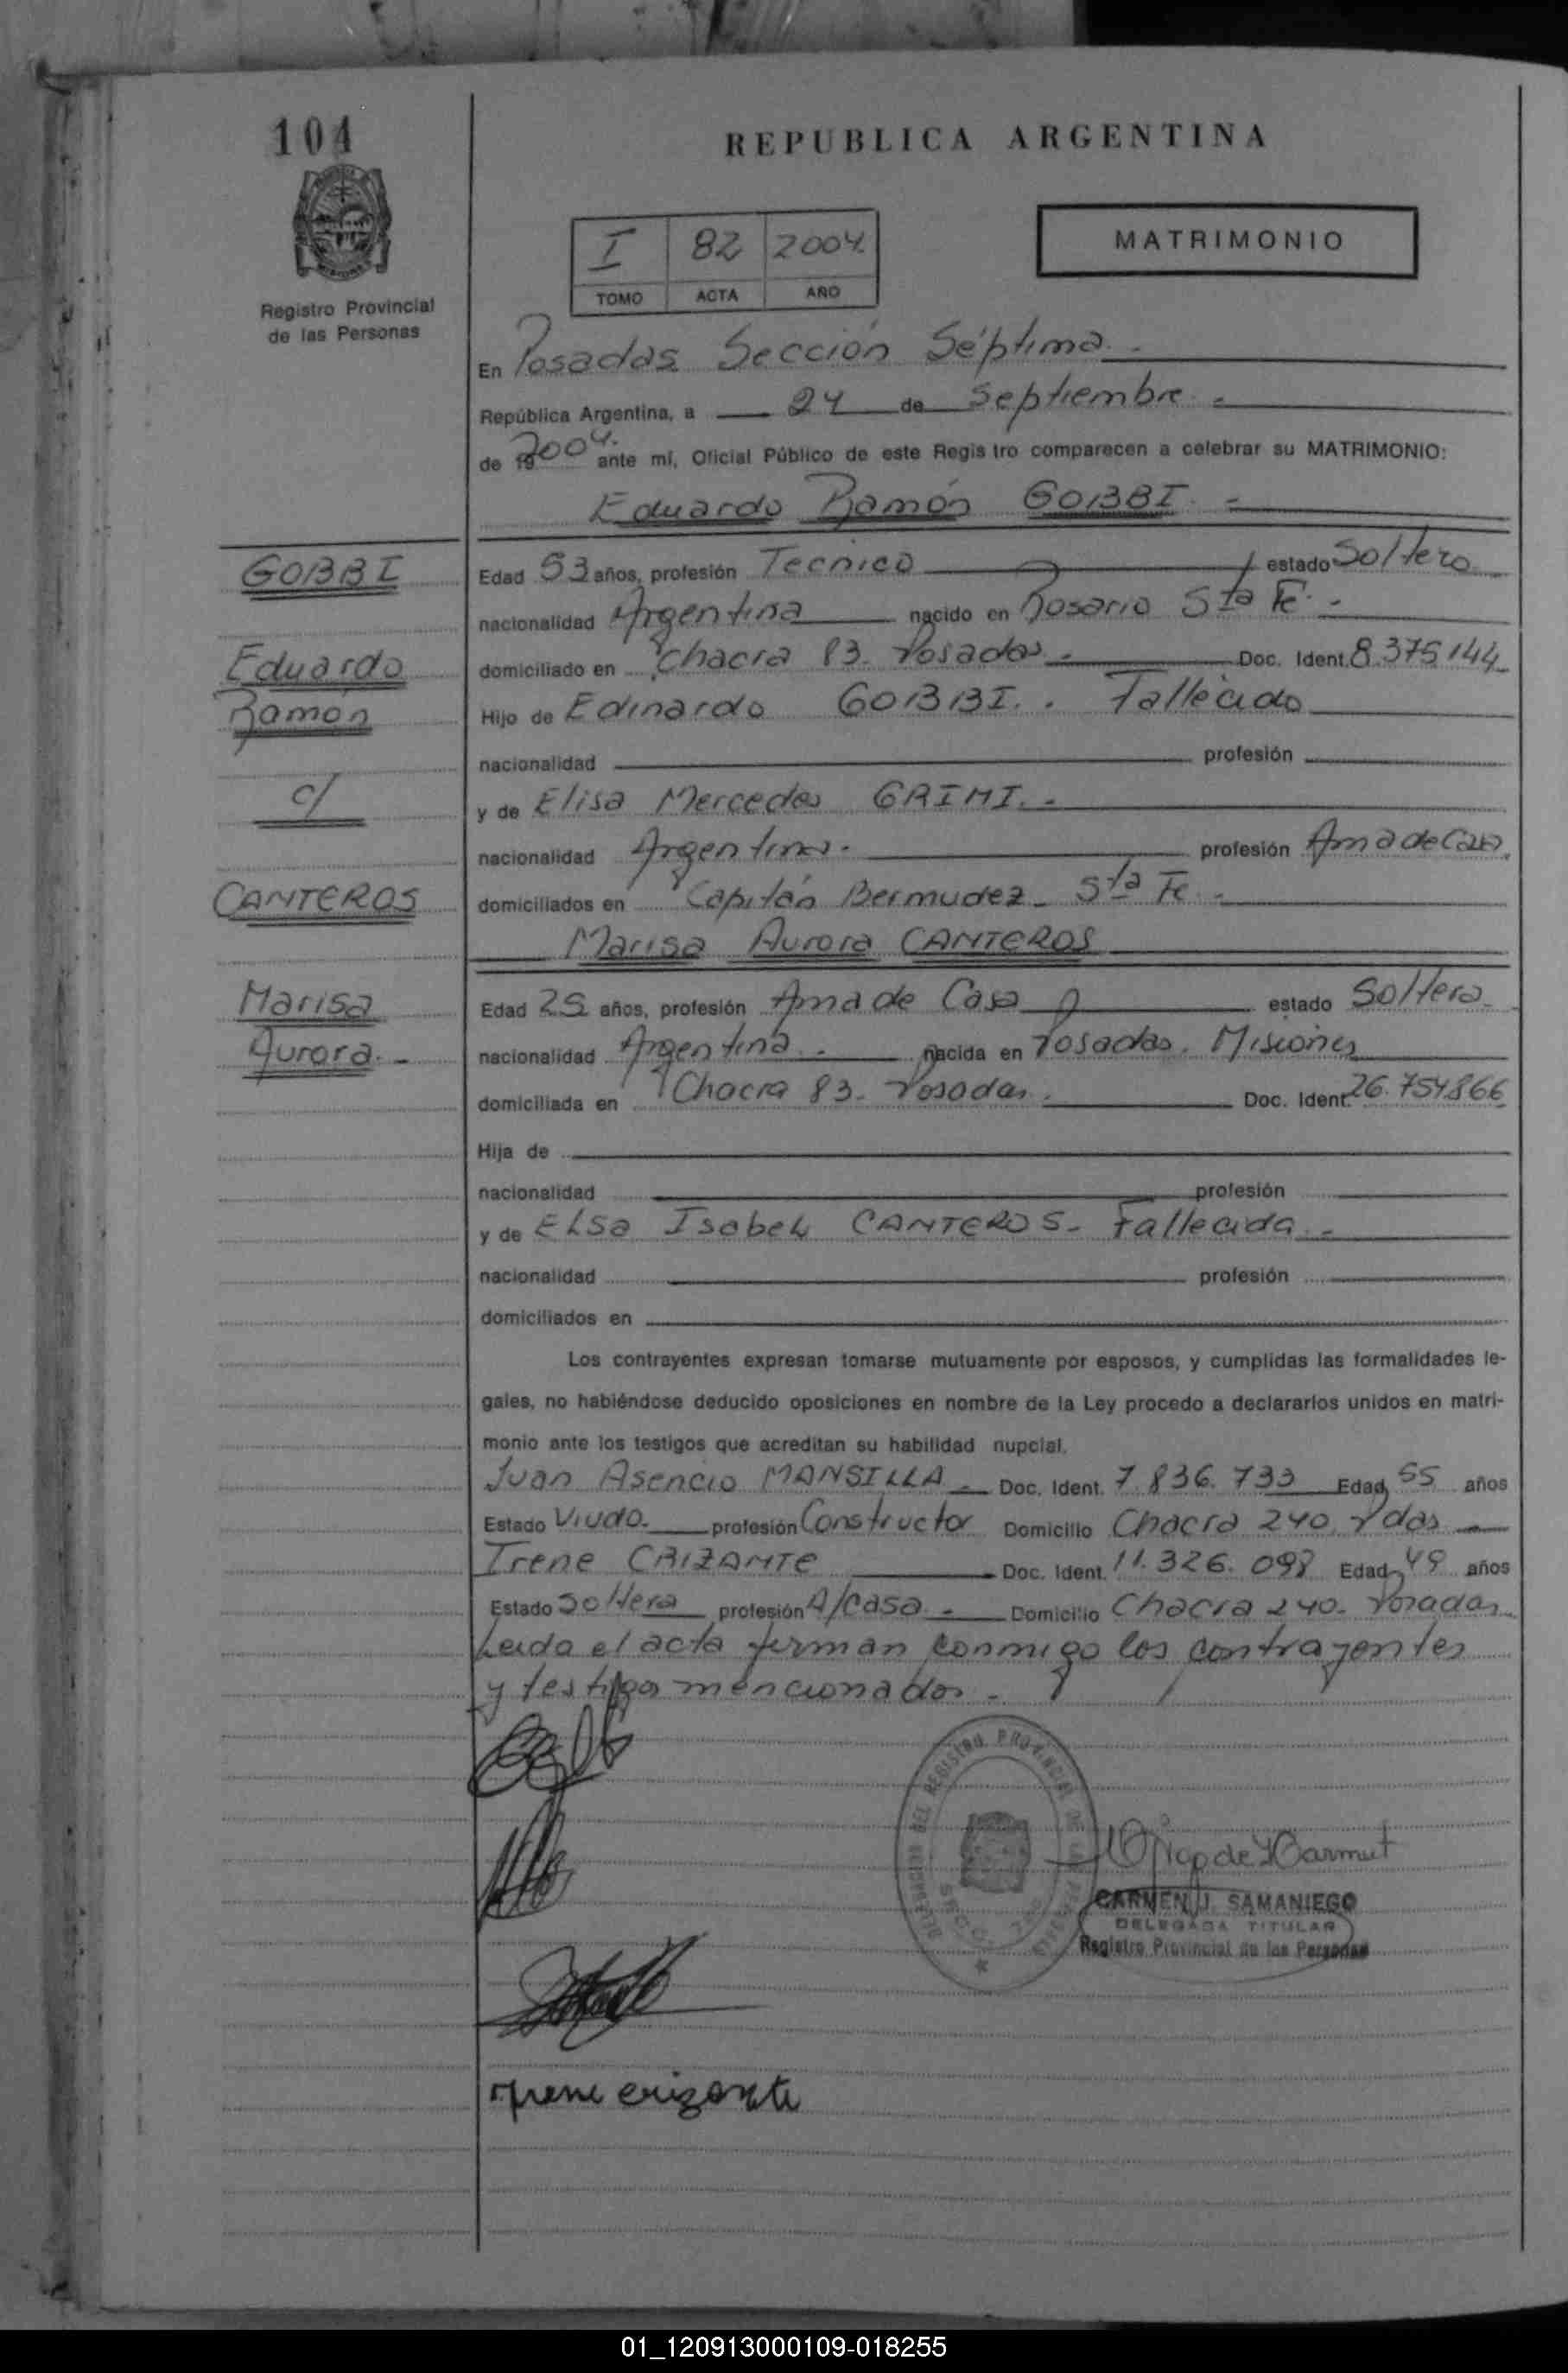 104
REPUBLICA ARGENTINA
I 82 2004.
TOMO ACTA AÑO
MATRIMONIO
Registro Provincial
de las Personas
En Posadas Sección Séptima.-
República Argentina, a 24 de Septiembre.-
de 2004. ante mí, Oficial Público de este Regis tro comparecen a celebrar su MATRIMONIO:
Eduardo Ramón GOBBI.-
GOBBI
Edad 53 años, profesión Tecnico estado Soltero
nacionalidad Argentina nacido en Rosario Sta Fe.-
Eduardo
domiciliado en Chacra 83. Posadas.- Doc. Ident. 8.375.144
Ramón
Hijo de Edinardo GOBBI.. Fallecido
nacionalidad profesión
c/
y de Elisa Mercedes GRIMI.-
nacionalidad Argentina. profesión Ama de Casa.
CANTEROS
domiciliados en Capitán Bermudez- Sta Fe.-
Marisa Aurora CANTEROS
Marisa
Edad 25 años, profesión Ama de Casa estado Soltera
Aurora.-
nacionalidad Argentina.- nacida en Posadas. Misiones
domiciliada en Chacra 83. Posadas. Doc. Ident. 26.754.866
Hija de
nacionalidad profesión
y de Elsa Isabel CANTEROS- Fallecida.-
nacionalidad profesión
domiciliados en
Los contrayentes expresan tomarse mutuamente por esposos, y cumplidas las formalidades le-
gales, no habiéndose deducido oposiciones en nombre de la Ley procedo a declararlos unidos en matri-
monio ante los testigos que acreditan su habilidad nupcial.
Juan Asencio MANSILLA.- Doc. Ident. 7.836.733 Edad 55 años
Estado Viudo. profesión Constructor Domicilio Chacra 240. Pdas
Irene CRIZANTE Doc. Ident. 11.326.098 Edad 49 años
Estado Soltera profesión A/casa.- Domicilio Chacra 240. Posadas
Leida el acta firman conmigo los contrayentes
y testigos mencionados.-
DELEGACION DEL REGISTRO PROVINCIAL DE LAS PERSONAS
SECC. 7
CARMEN J. SAMANIEGO
DELEGADA TITULAR
Registro Provincial de las Personas
Irene crizante
01_120913000109-018255